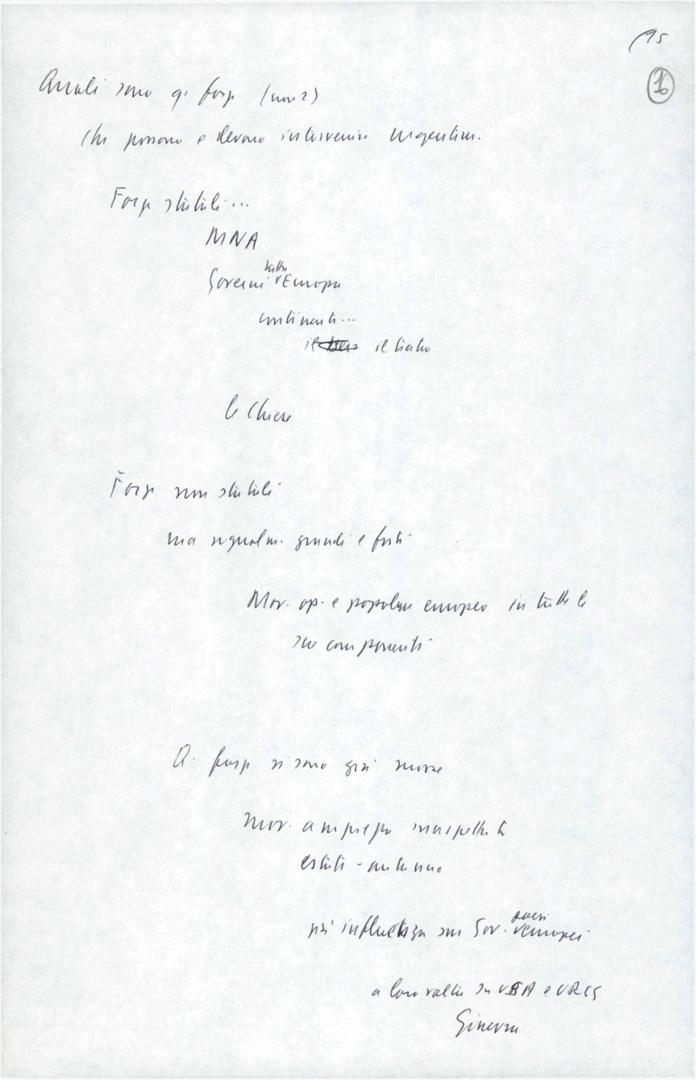 15
16
Quali sono q. forze (non?)
che possono e devono intervenire urgentem.
Forze statali...
MNA
Governi tutta Europa
continenti...
il
le Chiese
Forze non statali
ma ugualm. grandi e forti
Mov. op. e popolare europeo in tutte le
sue componenti
Q. forze si sono già mosse
Mov. ampiezza inaspettata
estate - autunno
più influenza sui Gov. paesi europei
a loro volta su USA e URSS
Ginevra